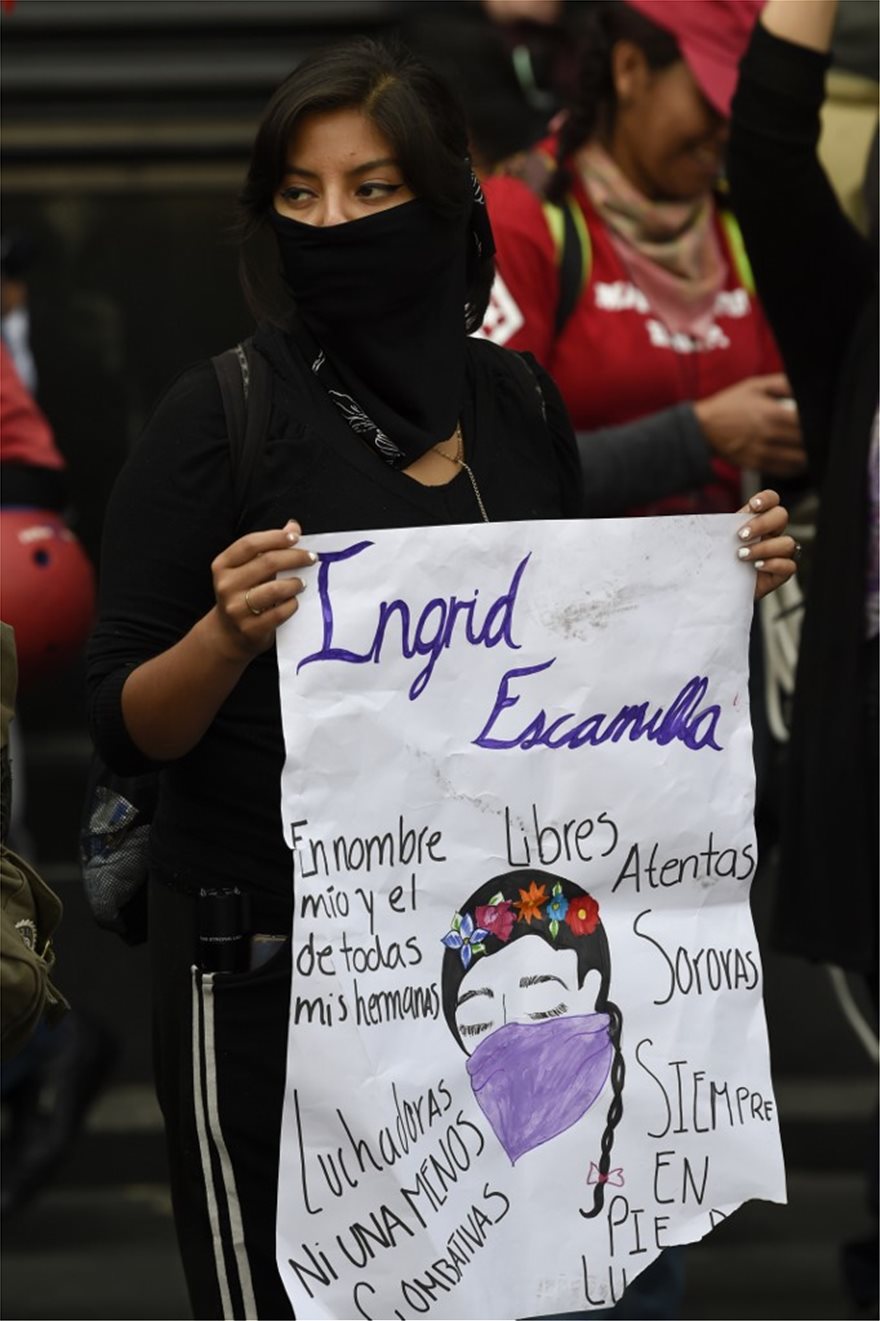 Ingrid
Escamilla
En nombre
mío y el
de todas
mis hermanas
Libres
Atentas
Sororas
SIEMPRE
EN
PIE
Luchadoras
Ni UNA MENOS
COMBATIVAS